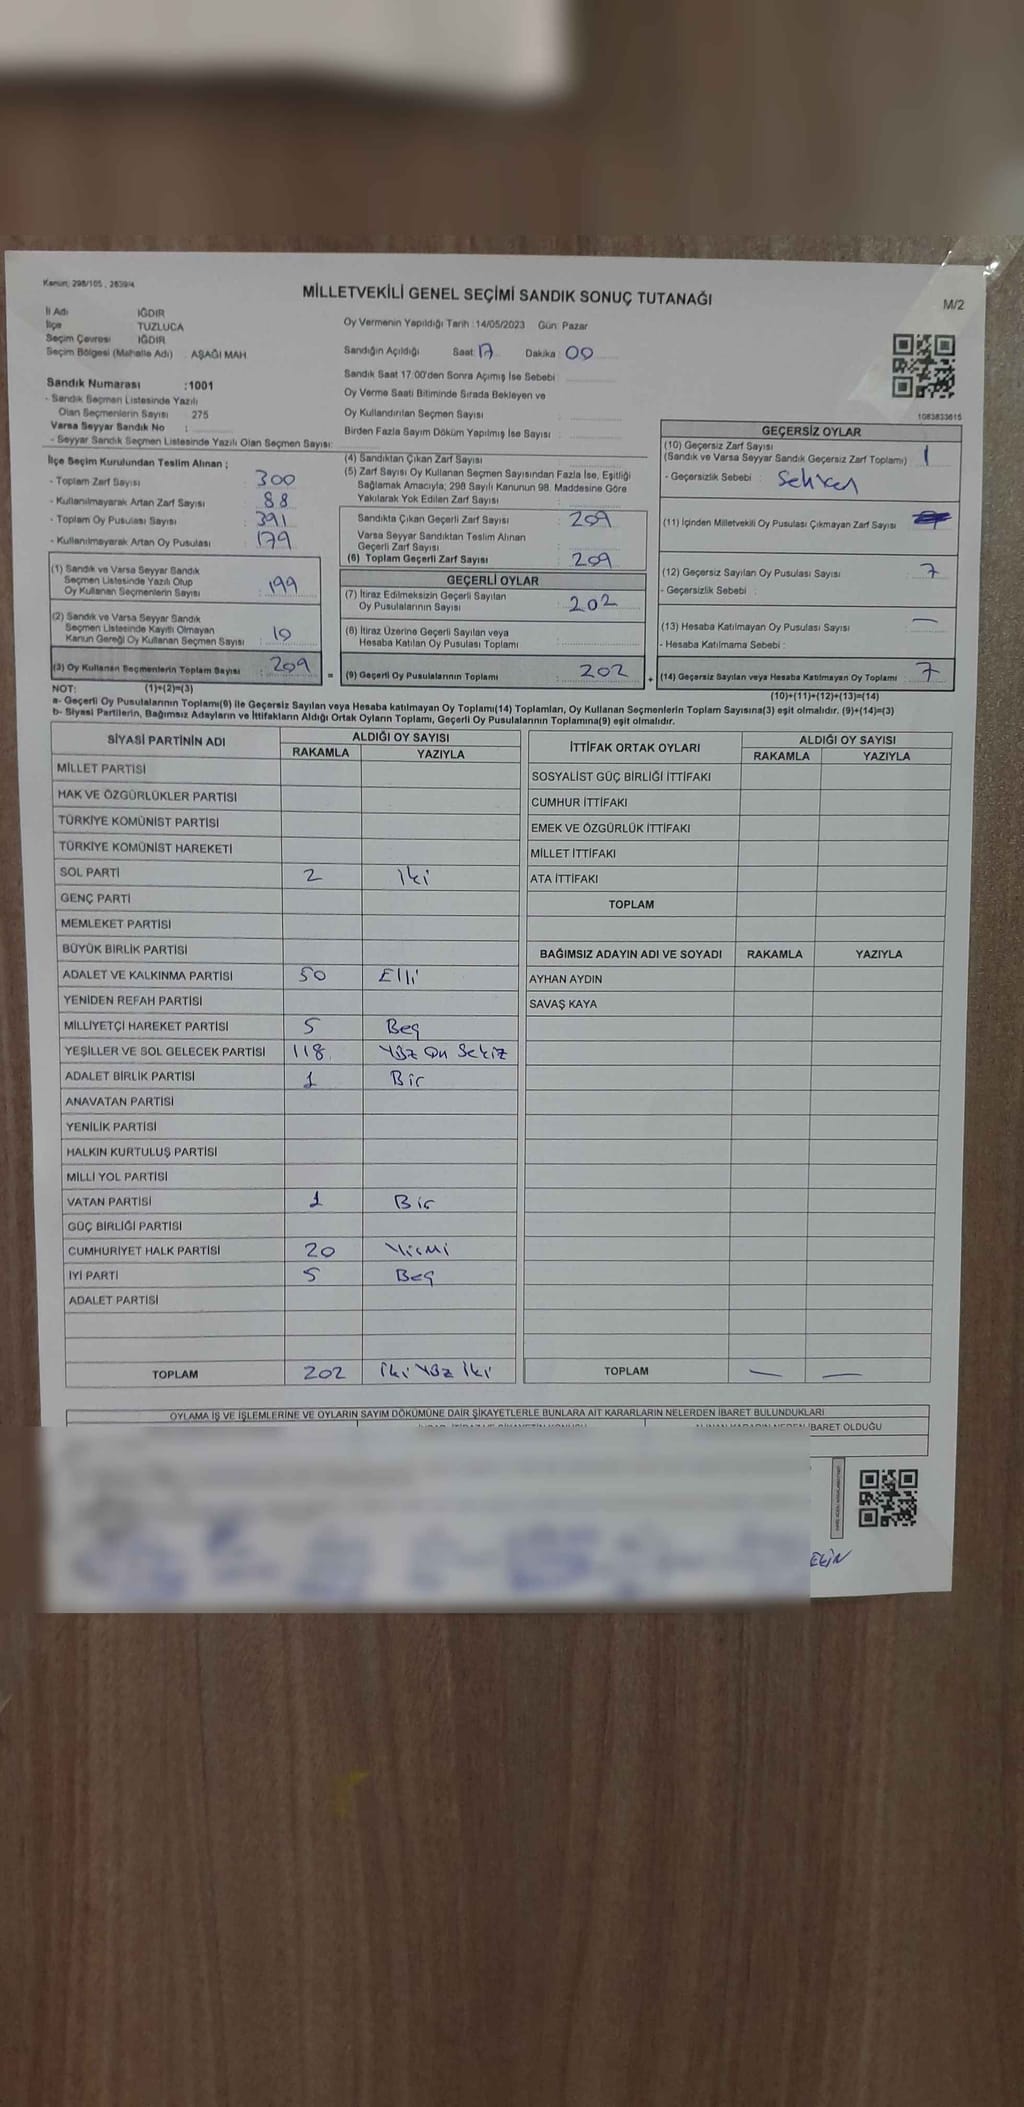 Kanun, 298/105 , 2839/4
MİLLETVEKİLİ GENEL SEÇİMİ SANDIK SONUÇ TUTANAĞI
M/2
İl Adı IĞDIR
İlçe TUZLUCA
Seçim Çevresi IĞDIR
Seçim Bölgesi (Mahalle Adı) : AŞAĞI MAH
Sandık Numarası :1001
- Sandık Seçmen Listesinde Yazılı
Olan Seçmenlerin Sayısı : 275
Varsa Seyyar Sandık No :
- Seyyar Sandık Seçmen Listesinde Yazılı Olan Seçmen Sayısı:
Oy Vermenin Yapıldığı Tarih :14/05/2023 Gün: Pazar
Sandığın Açıldığı Saat: 17 Dakika : 00
Sandık Saat 17:00'den Sonra Açımış İse Sebebi :
Oy Verme Saati Bitiminde Sırada Bekleyen ve
Oy Kullandırılan Seçmen Sayısı :
Birden Fazla Sayım Döküm Yapılmış İse Sayısı :
1083833615
İlçe Seçim Kurulundan Teslim Alınan ;
- Toplam Zarf Sayısı : 300
- Kullanılmayarak Artan Zarf Sayısı : 88
- Toplam Oy Pusulası Sayısı : 391
- Kullanılmayarak Artan Oy Pusulası : 179
(1) Sandık ve Varsa Seyyar Sandık
Seçmen Listesinde Yazılı Olup
Oy Kullanan Seçmenlerin Sayısı : 199
(2) Sandık ve Varsa Seyyar Sandık
Seçmen Listesinde Kayıtlı Olmayan
Kanun Gereği Oy Kullanan Seçmen Sayısı : 10
(3) Oy Kullanan Seçmenlerin Toplam Sayısı : 209
(4) Sandıktan Çıkan Zarf Sayısı :
(5) Zarf Sayısı Oy Kullanan Seçmen Sayısından Fazla İse, Eşitliği
Sağlamak Amacıyla; 298 Sayılı Kanunun 98. Maddesine Göre
Yakılarak Yok Edilen Zarf Sayısı :
Sandıkta Çıkan Geçerli Zarf Sayısı : 209
Varsa Seyyar Sandıktan Teslim Alınan
Geçerli Zarf Sayısı :
(6) Toplam Geçerli Zarf Sayısı : 209
GEÇERLİ OYLAR
(7) İtiraz Edilmeksizin Geçerli Sayılan
Oy Pusulalarının Sayısı : 202
(8) İtiraz Üzerine Geçerli Sayılan veya
Hesaba Katılan Oy Pusulası Toplamı :
= (9) Geçerli Oy Pusulalarının Toplamı : 202
GEÇERSİZ OYLAR
(10) Geçersiz Zarf Sayısı
(Sandık ve Varsa Seyyar Sandık Geçersiz Zarf Toplamı) : 1
- Geçersizlik Sebebi :
(11) İçinden Milletvekili Oy Pusulası Çıkmayan Zarf Sayısı :
(12) Geçersiz Sayılan Oy Pusulası Sayısı : 7
- Geçersizlik Sebebi :
(13) Hesaba Katılmayan Oy Pusulası Sayısı : —
- Hesaba Katılmama Sebebi :
+ (14) Geçersiz Sayılan veya Hesaba Katılmayan Oy Toplamı : 7
NOT: (1)+(2)=(3) (10)+(11)+(12)+(13)=(14)
a- Geçerli Oy Pusulalarının Toplamı(9) ile Geçersiz Sayılan veya Hesaba katılmayan Oy Toplamı(14) Toplamları, Oy Kullanan Seçmenlerin Toplam Sayısına(3) eşit olmalıdır. (9)+(14)=(3)
b- Siyasi Partilerin, Bağımsız Adayların ve İttifakların Aldığı Ortak Oyların Toplamı, Geçerli Oy Pusulalarının Toplamına(9) eşit olmalıdır.
SİYASİ PARTİNİN ADI ALDIĞI OY SAYISI
RAKAMLA YAZIYLA
MİLLET PARTİSİ
HAK VE ÖZGÜRLÜKLER PARTİSİ
TÜRKİYE KOMÜNİST PARTİSİ
TÜRKİYE KOMÜNİST HAREKETİ
SOL PARTİ 2 iki
GENÇ PARTİ
MEMLEKET PARTİSİ
BÜYÜK BİRLİK PARTİSİ
ADALET VE KALKINMA PARTİSİ 50 Elli
YENİDEN REFAH PARTİSİ
MİLLİYETÇİ HAREKET PARTİSİ 5 Beş
YEŞİLLER VE SOL GELECEK PARTİSİ 118 Yüz On Sekiz
ADALET BİRLİK PARTİSİ 1 Bir
ANAVATAN PARTİSİ
YENİLİK PARTİSİ
HALKIN KURTULUŞ PARTİSİ
MİLLİ YOL PARTİSİ
VATAN PARTİSİ 1 Bir
GÜÇ BİRLİĞİ PARTİSİ
CUMHURİYET HALK PARTİSİ 20 Yirmi
İYİ PARTİ 5 Beş
ADALET PARTİSİ
TOPLAM 202 İki Yüz İki
İTTİFAK ORTAK OYLARI ALDIĞI OY SAYISI
RAKAMLA YAZIYLA
SOSYALİST GÜÇ BİRLİĞİ İTTİFAKI
CUMHUR İTTİFAKI
EMEK VE ÖZGÜRLÜK İTTİFAKI
MİLLET İTTİFAKI
ATA İTTİFAKI
TOPLAM
BAĞIMSIZ ADAYIN ADI VE SOYADI RAKAMLA YAZIYLA
AYHAN AYDIN
SAVAŞ KAYA
TOPLAM — —
OYLAMA İŞ VE İŞLEMLERİNE VE OYLARIN SAYIM DÖKÜMÜNE DAİR ŞİKAYETLERLE BUNLARA AİT KARARLARIN NELERDEN İBARET BULUNDUKLARI
İBARET OLDUĞU